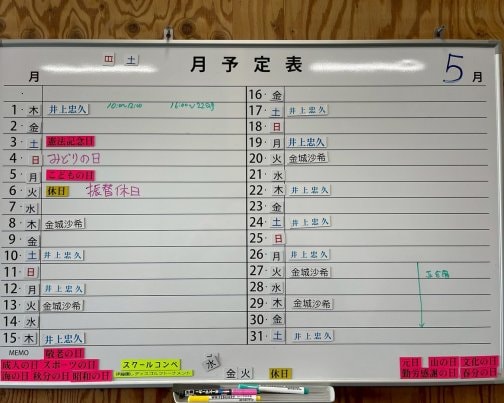 日 土 月予定表 5月
月
1・木 井上忠久 10:00~12:00 16:00~22:00
2・金
3・土 憲法記念日
4・日 みどりの日
5・月 こどもの日
6・火 休日 振替休日
7・水
8・木 金城沙希
9・金
10・土 井上忠久
11・日
12・月 井上忠久
13・火 金城沙希
14・水
15・木 井上忠久
16・金
17・土 井上忠久
18・日
19・月 井上忠久
20・火 金城沙希
21・水
22・木 井上忠久
23・金
24・土 井上忠久
25・日
26・月 井上忠久
27・火 金城沙希
28・水
29・木 金城沙希
30・金
31・土 井上忠久
MEMO 敬老の日
成人の日 スポーツの日
海の日 秋分の日 昭和の日
スクールコンペ
水 金 火 休日
元日 山の日 文化の日
勤労感謝の日 春分の日